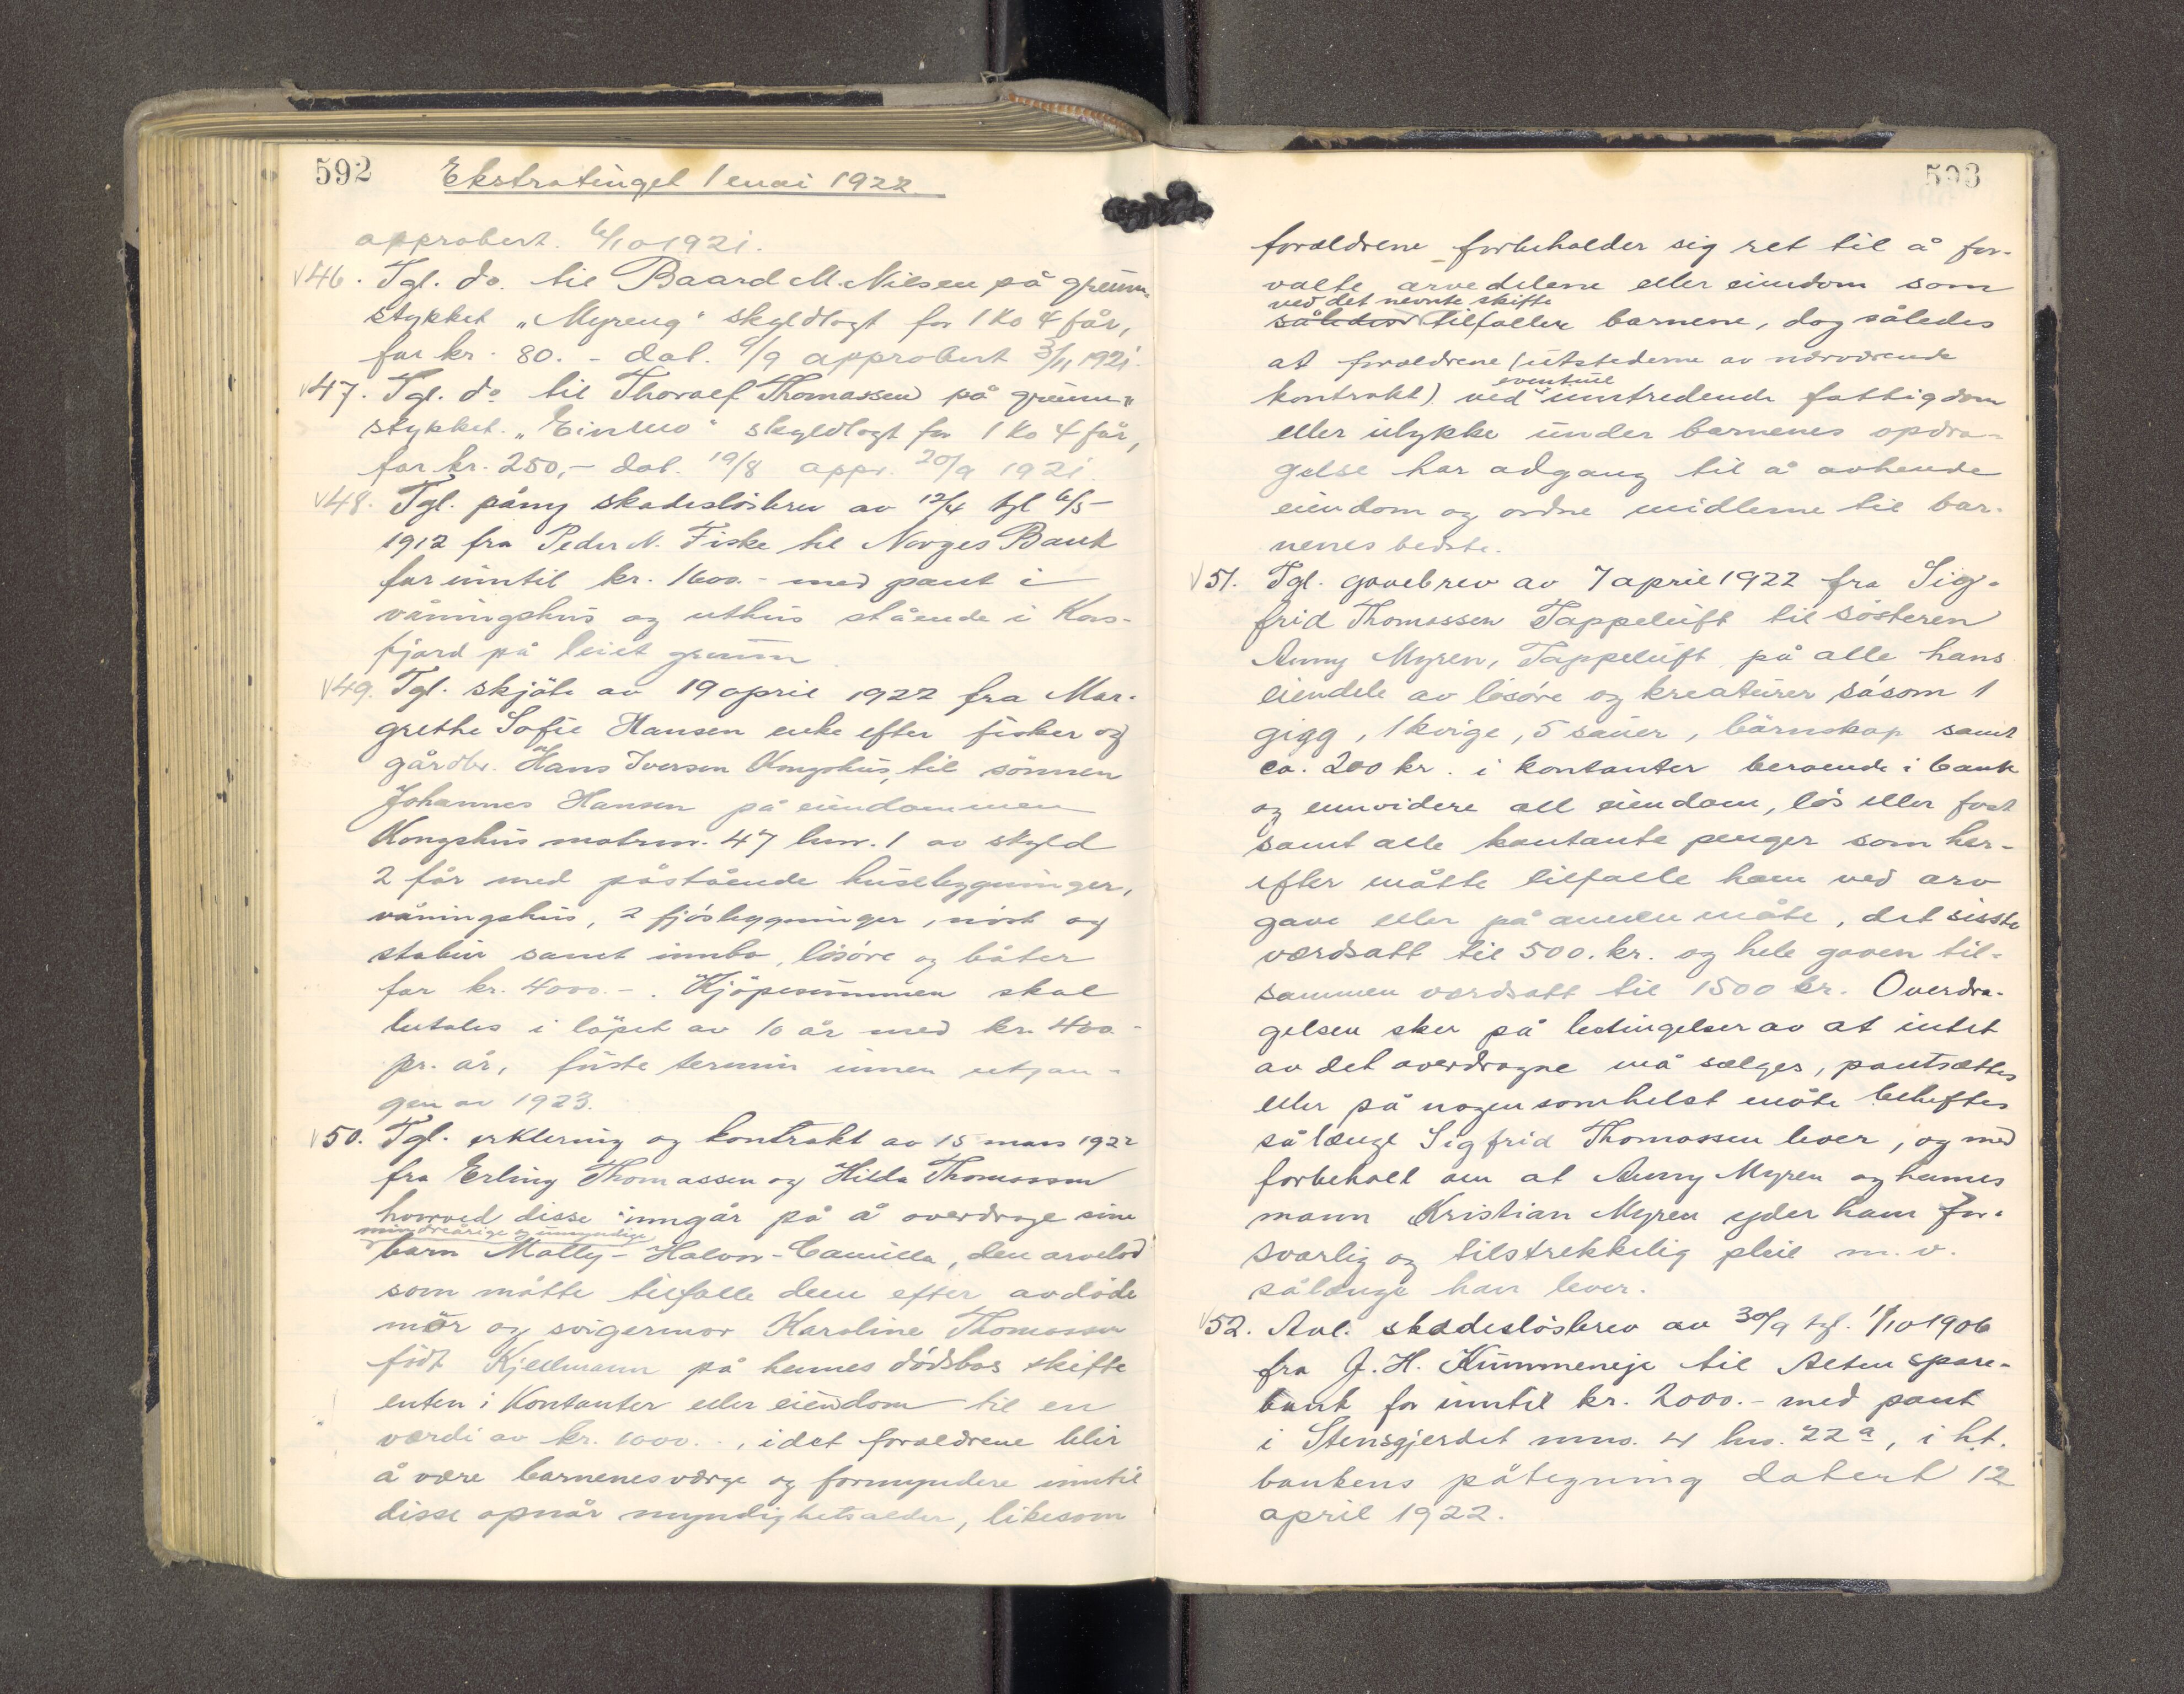 592
Ekstratinget 1 mai 1922
approbert. 6/10 1921.
√46. Tgl. do. til Baard M. Nilsen på grunn-
stykket "Myreng" skyldlagt for 1 ko 4 får,
for kr. 80.- dat. 9/9 approbert 3/11 1921.
√47. Tgl. do til Thoralf Thomassen på grunn-
stykket. "Einmo" skyldlagt for 1 ko 4 får,
for kr. 250,- dat. 19/8 appr. 20/9 1921
√48. Tgl. påny skadeslösbrev av 12/4 tgl 6/5-
1912 fra Peder N. Fiske til Norges Bank
for inntil kr. 1600.- med pant i
våningshus og uthus stående i Kors-
fjord på leiet grunn.
√49. Tgl. skjöte av 19 april 1922 fra Mar-
grethe Sofie Hansen enke efter fisker og
gårdbr. Hans Iversen Kongshus, til sönnen
Johannes Hansen på eiendommen
Kongshus matrnr. 47 lnr. 1 av skyld
2 får med påstående husebygninger,
våningshus, 2 fjösbygninger, nöst og
stabur samt innbo, lösöre og båter
for kr. 4000.-. Kjöpesummen skal
betales i löpet av 10 år med kr. 400.-
pr. år, fürste termin innen utgan-
gen av 1923.
√50. Tgl. erklering og kontrakt av 15 mars 1922
fra Erling Thomassen og Hilda Thomassen
hvorved disse inngår på å overdrage sine
mindreårige og umyndige
barn Molly - Halvor - Camilla, den arvelod
som måtte tilfalle dem efter avdöde
mor og svigermor Karoline Thomassen
födt Kjellmann på hennes dödsbos skifte
enten i Kontanter eller eiendom til en
værdi av kr. 1000.-, idet forældrene blir
å være barnenes værge og formyndere inntil
disse opnår myndighetsalder, likesom
593
forældrene forbeholder sig ret til å for-
valte arvedelene eller eiendom som
ved det nevnte skifte
således tilfaller barnene, dog således
at forældrene (utstederne av nærværende
eventuel
kontrakt) ved inntredende fattigdom
eller ulykke under barnenes opdra-
gelse har adgang til å avhende
eiendom og ordne midlerne til bar-
nenes bedste.
√51. Tgl. gavebrev av 7 april 1922 fra Sig-
frid Thomassen Tappeluft til sösteren
Anny Myren, Tappeluft på alle hans
eiendele av lösöre og kreaturer såsom 1
gigg, 1 kvige, 5 sauer, bårnskap samt
ca. 200 kr. i kontanter beroende i bank
og envidere all eiendom, lös eller fast
samt alle kontante penger som her-
efter måtte tilfalle ham ved arv
gave eller på annen måte, det sisste
værdsatt til 500. kr. og hele gaven til-
sammen værdsatt til 1500 kr. Overdra-
gelsen sker på betingelser av at intet
av det overdragne må sælges, pantsættes
eller på nogensomhelst måte beheftes
så længe Sigfrid Thomassen lever, og med
forbehold om at Anny Myren og hennes
mann Kristian Myren yder ham for-
svarlig og tilstrekkelig pleie m.v.
sålænge han lever.
√52. Avl. skadeslösbrev av 30/9 tgl. 1/10 1906
fra J. H. Kummeneje til Alten spare-
bank for inntil kr. 2000.- med pant
i Stensgjerdet mno. 4 lno. 22a, i h.t.
bankens påtegning datert 12
april 1922.